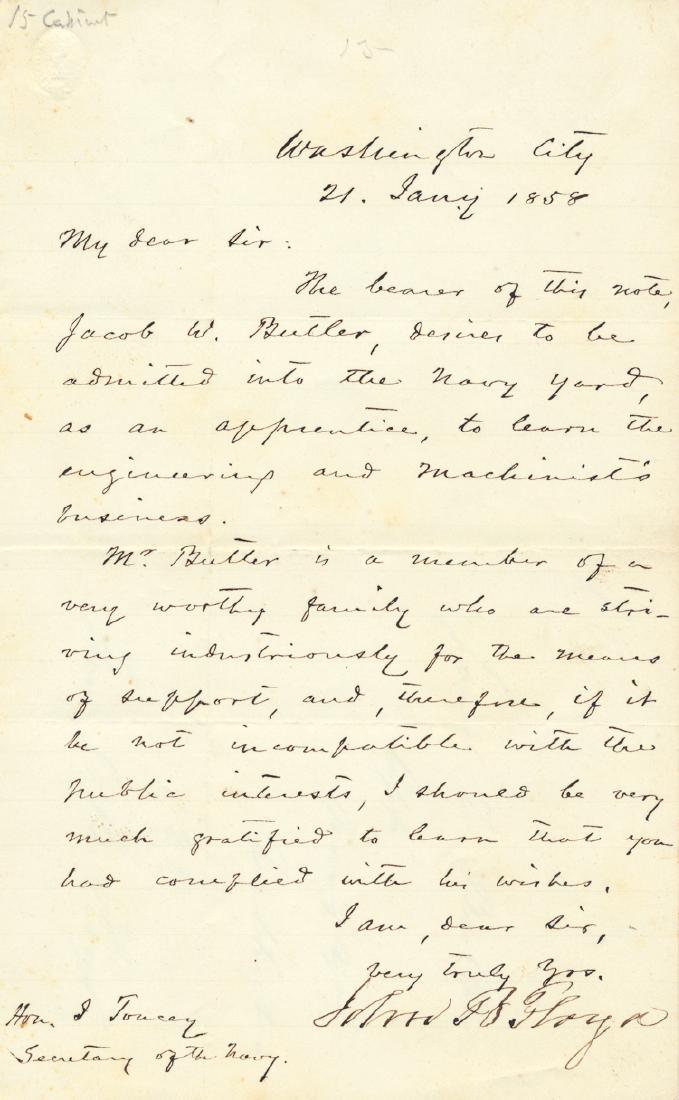 15 Cabinet
15
Washington City
21. Jany 1858
My dear Sir:
The bearer of this note,
Jacob W. Butler, desires to be
admitted into the Navy Yard,
as an apprentice, to learn the
engineering and Machinist's
business.
Mr. Butler is a member of a
very worthy family who are stri-
ving industriously for the means
of support, and, therefore, if it
be not incompatible with the
public interests, I should be very
much gratified to learn that you
had complied with his wishes.
I am, dear Sir,
very truly Yrs.
John B Floyd
Hon. I Toucey
Secretary of the Navy.